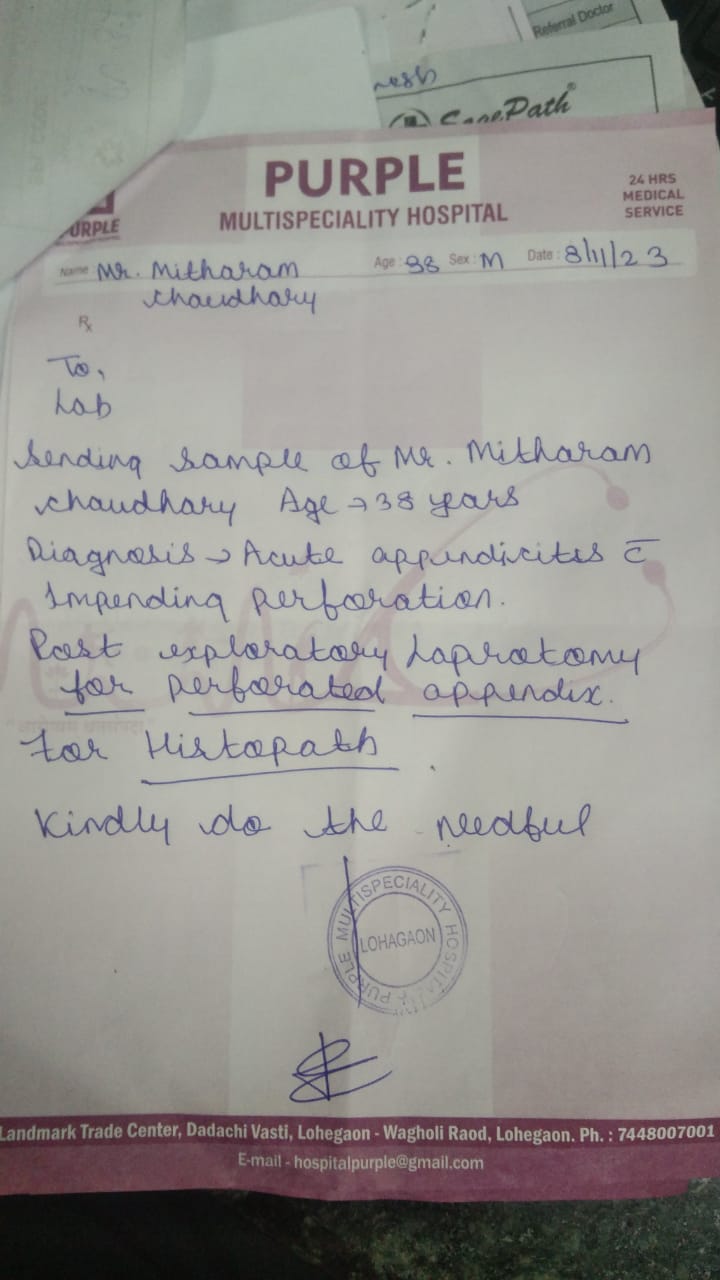 Referral Doctor
nesh
SagePath
PURPLE
PURPLE
MULTISPECIALITY HOSPITAL
24 HRS
MEDICAL
SERVICE
Name Mr. Mitharam Age : 38 Sex : M Date : 8/11/23
Chaudhary
Rx
To,
Lab
Sending sample of Mr. Mitharam
Chaudhary Age → 38 years
Diagnosis → Acute appendicites c̅
Impending perforation.
Post exploratory Laprotomy
for perforated appendix.
For Histopath
Kindly do the needful
PURPLE MULTISPECIALITY HOSPITAL
LOHAGAON
Landmark Trade Center, Dadachi Vasti, Lohegaon - Wagholi Raod, Lohegaon. Ph. : 7448007001
E-mail - hospitalpurple@gmail.com